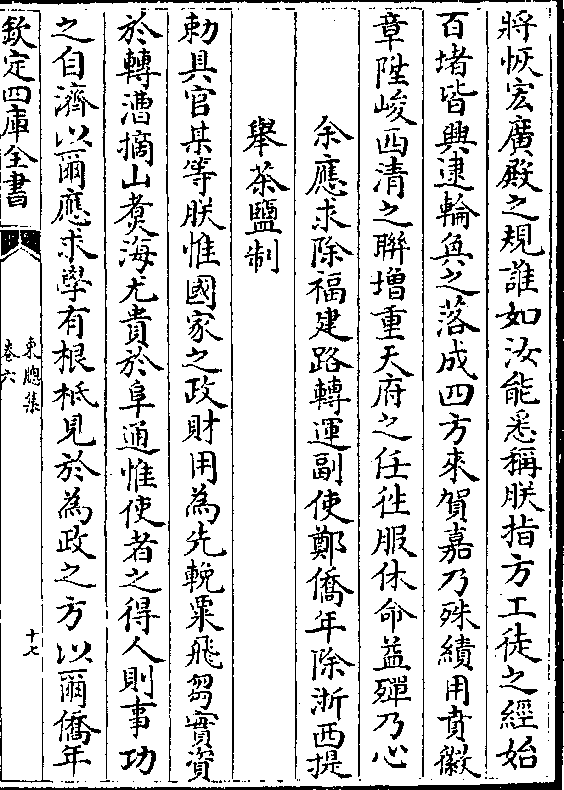 將恢宏廣殿之規誰如汝能悉稱朕指方工徒之經始
百堵皆興逮輪奐之落成四方來賀嘉乃殊績用賁徽
章陞峻西清之聯增重天府之任徃服休命益殫乃心
余應求除福建路轉運副使鄭僑年除浙西提
舉茶鹽制
勅具官某等朕惟國家之政財用為先輓粟飛芻實資
於轉漕摘山煑海尤貴於阜通惟使者之得人則事功
之自濟以爾應求學有根柢見於為政之方以爾僑年
欽定四庫全書
東牕集
卷六
十七